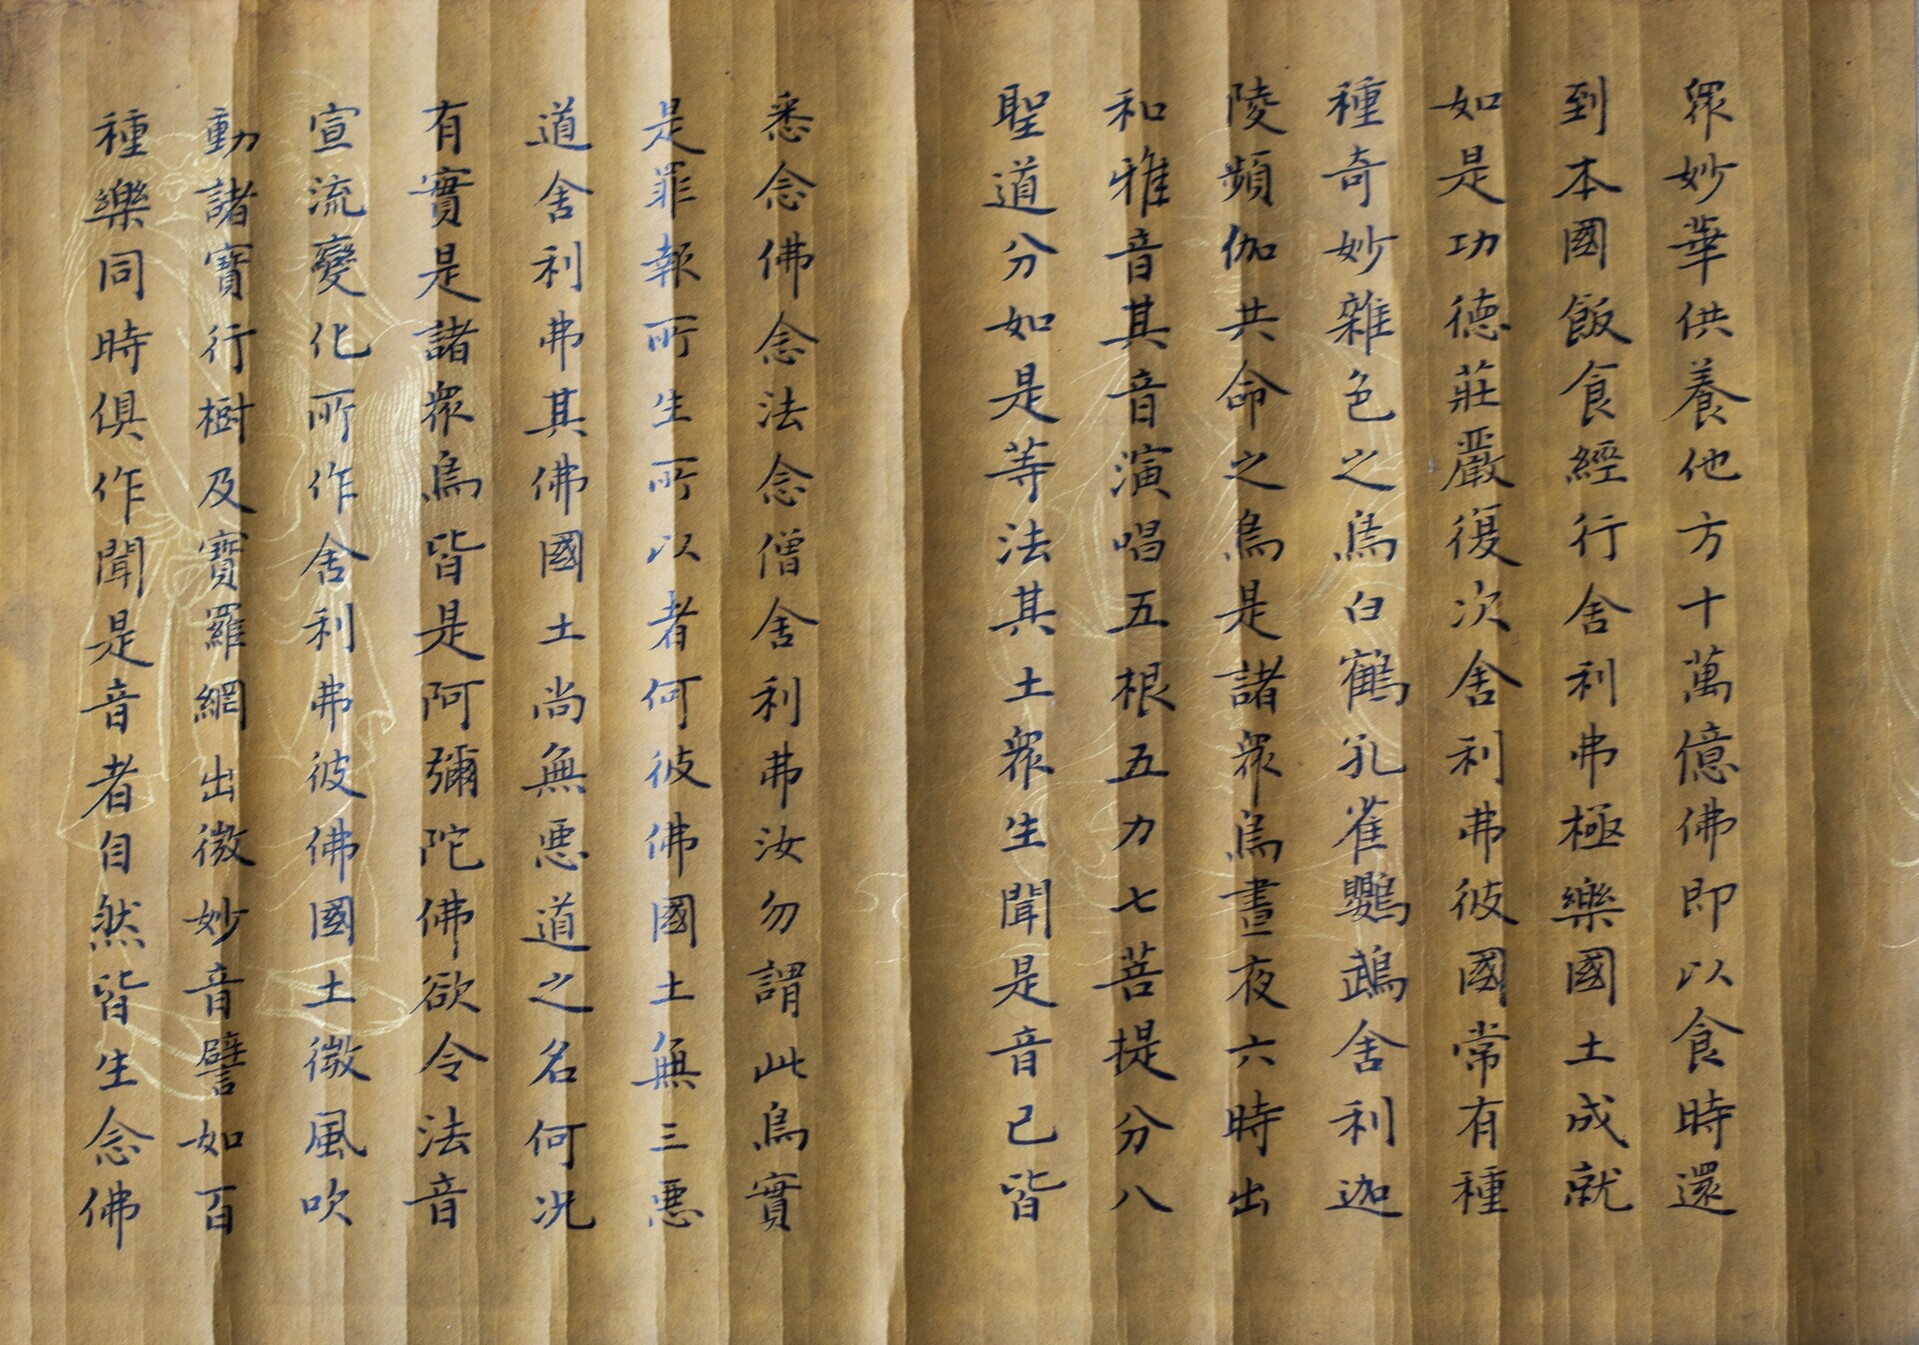 眾妙華供養他方十萬億佛即以食時還
到本國飯食經行舍利弗極樂國土成就
如是功德莊嚴復次舍利弗彼國常有種
種奇妙雜色之鳥白鶴孔雀鸚鵡舍利迦
陵頻伽共命之鳥是諸眾鳥晝夜六時出
和雅音其音演唱五根五力七菩提分八
聖道分如是等法其土眾生聞是音已皆
悉念佛念法念僧舍利弗汝勿謂此鳥實
是罪報所生所以者何彼佛國土無三惡
道舍利弗其佛國土尚無惡道之名何況
有實是諸眾鳥皆是阿彌陀佛欲令法音
宣流變化所作舍利弗彼佛國土微風吹
動諸寶行樹及寶羅網出微妙音譬如百
種樂同時俱作聞是音者自然皆生念佛